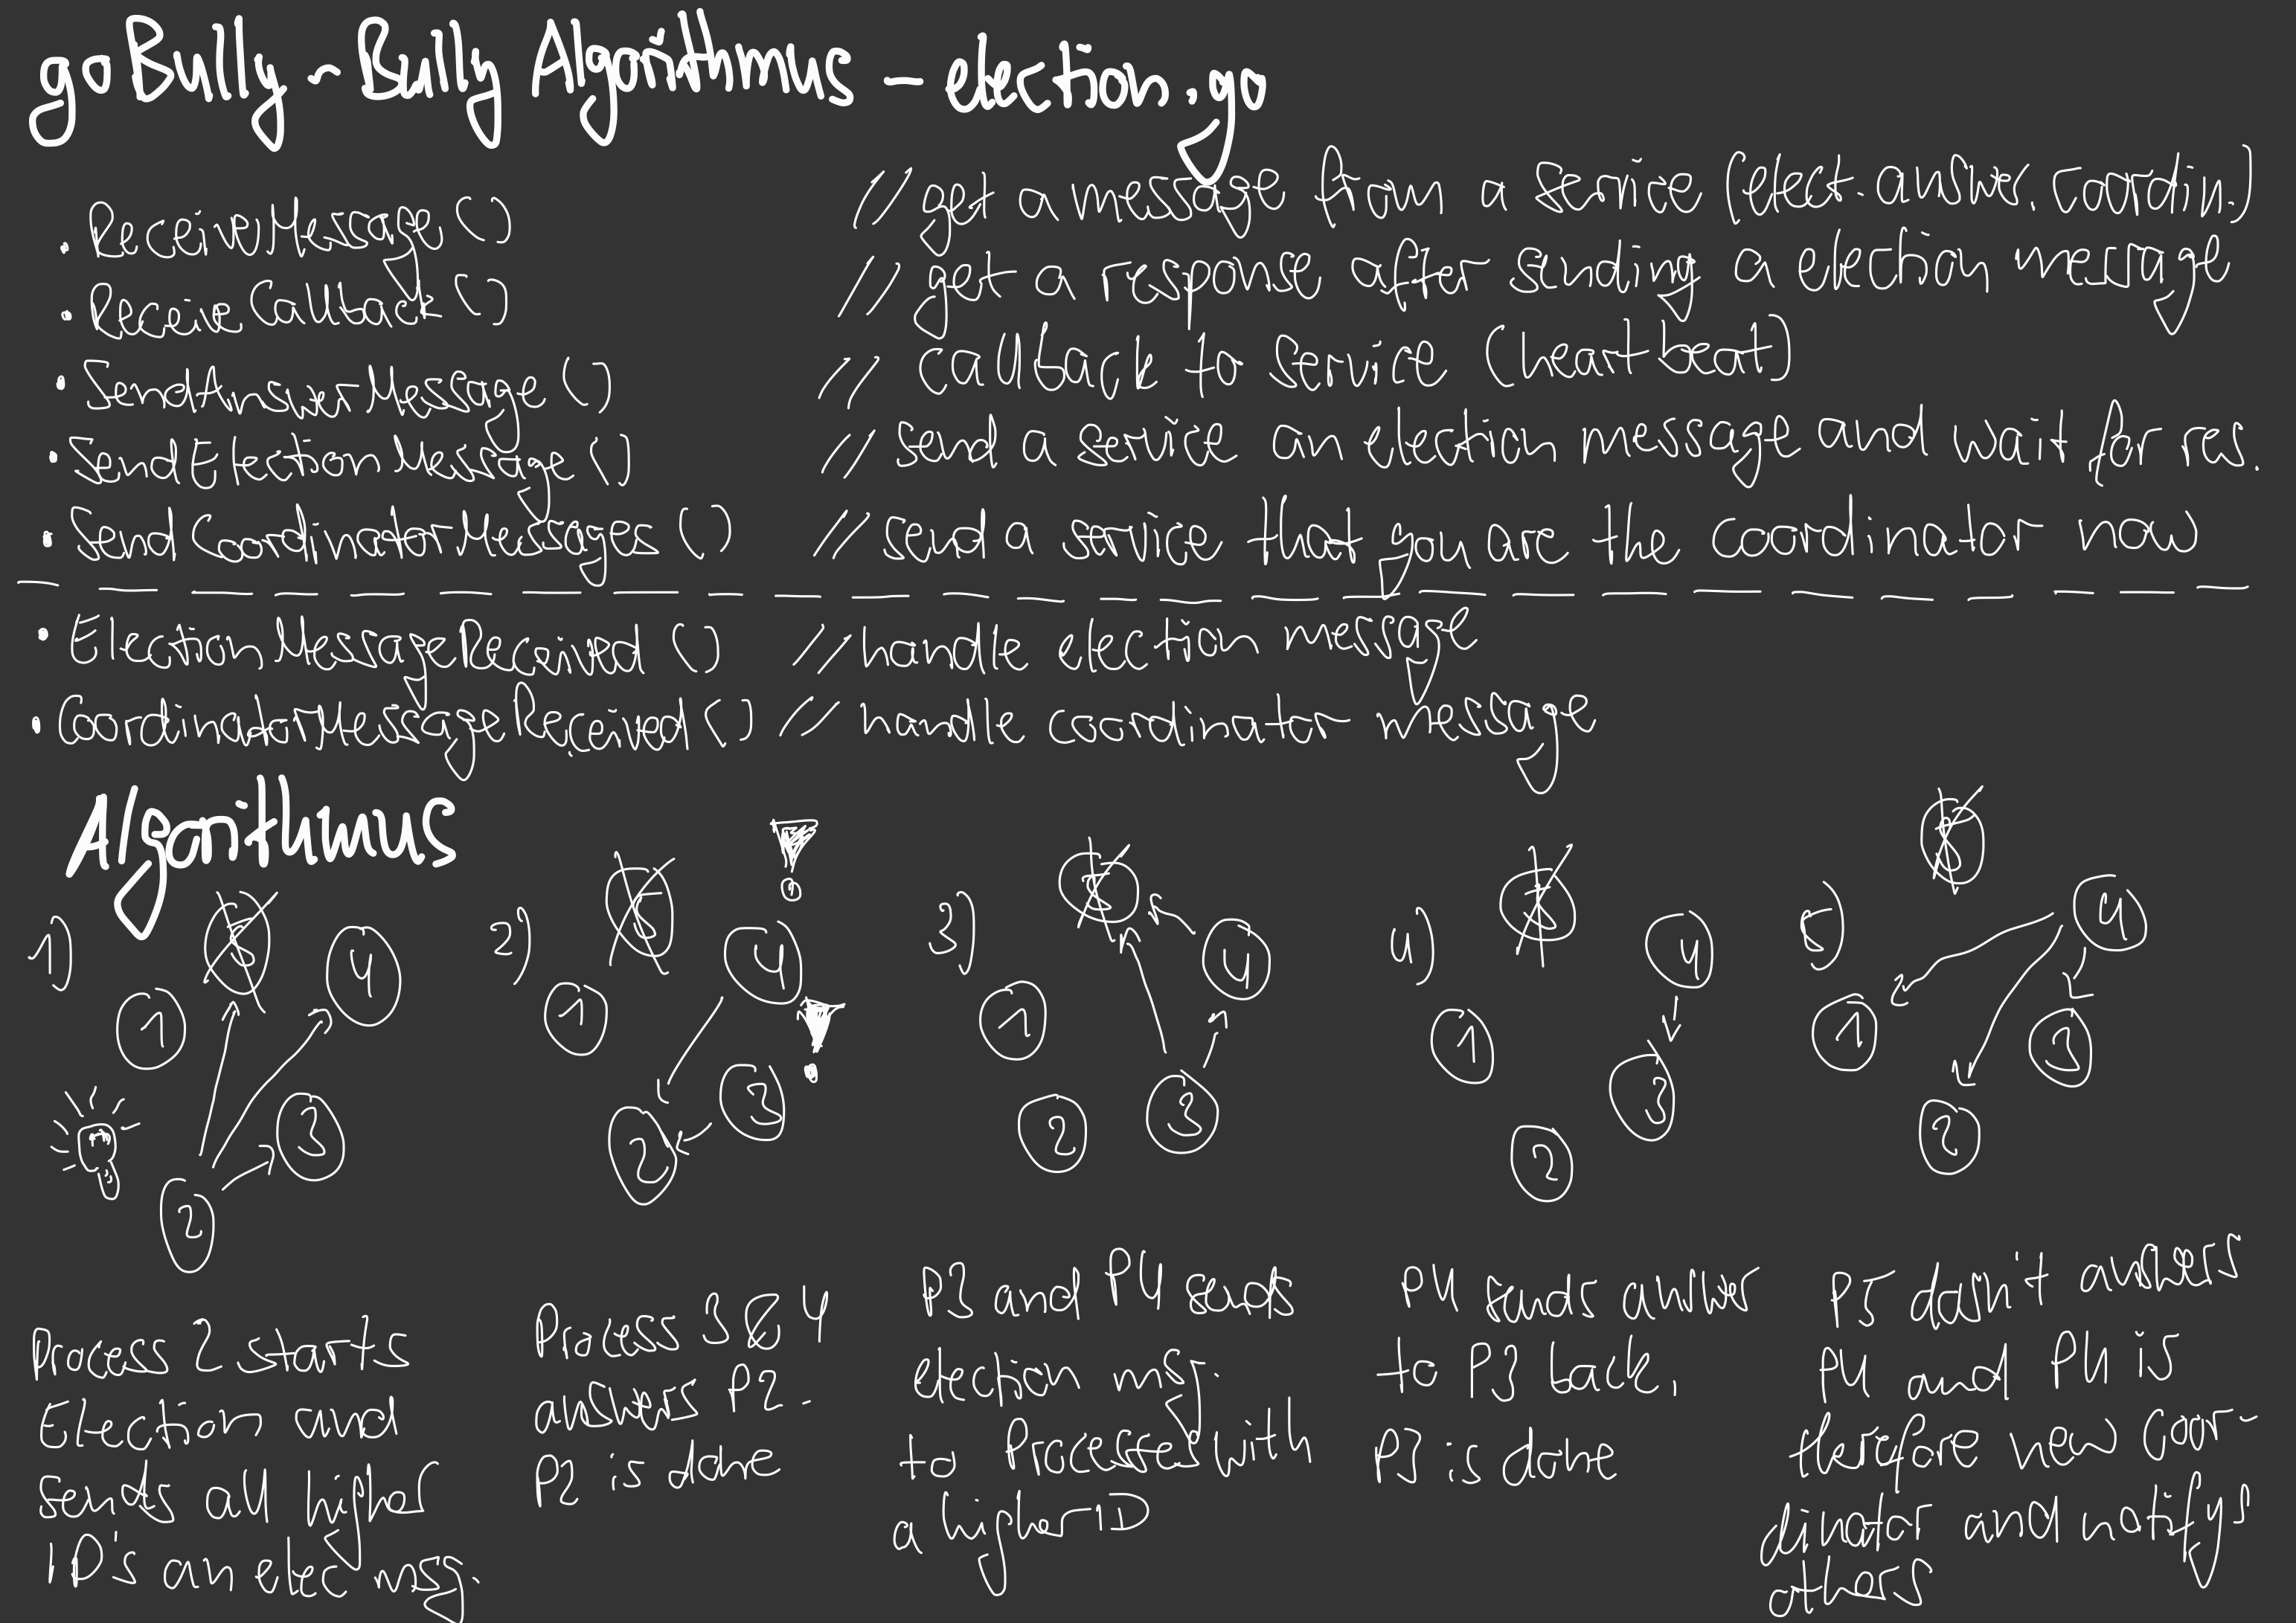 goBully - Bully Algorithmus - election.go
• ReceiveMessage() // get a message from a service (elect. answer, coordin.)
• ReceiveCallback() // get a response after sending a election message
• SendAnswerMessage() // callback to service (heartbeat)
• SendElectionMessage() // send a service an election message and wait for res.
• SendCoordinatorMessages() // send a service that you are the coordinator now
• ElectionMessageReceived() // handle election message
• CoordinatorMessageReceived() // handle coordinator message
Algorithmus
1) 5 4 1 3 2
2) 5 4 1 3 2
3) 5 4 1 3 2
4) 5 4 1 3 2
5) 5 4 1 3 2
Process 2 starts
Election and
sends all higher
ID's an elec msg.
Process 3 & 4
answers P2.
P2 is done
P3 and P4 sends
election msg.
to Processes with
a higher ID
P4 sends answer
to P3 back.
P3 is done
P5 don't answers
P4 and P4 is
therefore new Coor-
dinator and notifys
others